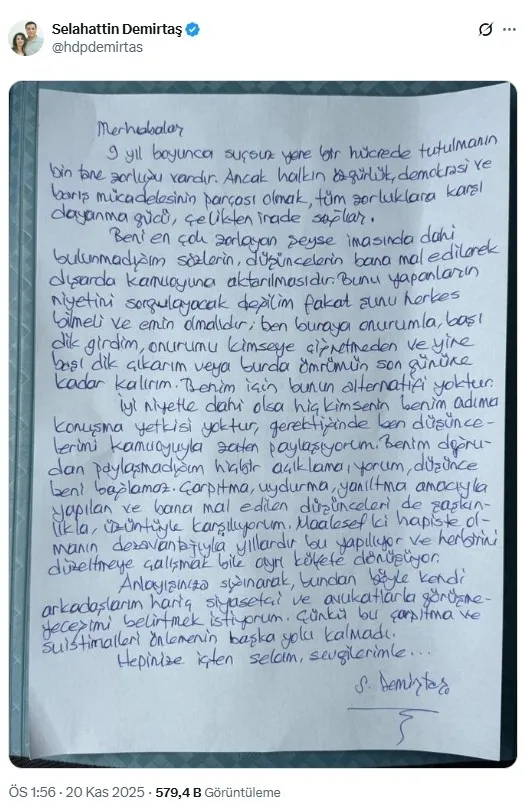 Selahattin Demirtaş
@hdpdemirtas
Merhabalar
9 yıl boyunca suçsuz yere bir hücrede tutulmanın
bin tane zorluğu vardır. Ancak halkın özgürlük, demokrasi ve
barış mücadelesinin parçası olmak, tüm zorluklara karşı
dayanma gücü, çelikten irade sağlar.
Beni en çok zorlayan şeyse imasında dahi
bulunmadığım sözlerin, düşüncelerin bana mal edilerek
dışarda kamuoyuna aktarılmasıdır. Bunu yapanların
niyetini sorgulayacak değilim fakat şunu herkes
bilmeli ve emin olmalıdır; ben buraya onurumla, başı
dik girdim, onurumu kimseye çiğnetmeden ve yine
başı dik çıkarım veya burda ömrümün son gününe
kadar kalırım. Benim için bunun alternatifi yoktur.
İyi niyetle dahi olsa hiç kimsenin benim adıma
konuşma yetkisi yoktur, gerektiğinde ben düşünce-
lerimi kamuoyuyla zaten paylaşıyorum. Benim doğru-
dan paylaşmadığım hiçbir açıklama, yorum, düşünce
beni bağlamaz. Çarpıtma, uydurma, yanıltma amacıyla
yapılan ve bana mal edilen düşünceleri de şaşkın-
lıkla, üzüntüyle karşılıyorum. Maalesef ki hapiste ol-
manın dezavantajıyla yıllardır bu yapılıyor ve herbirini
düzeltmeye çalışmak bile ayrı külfete dönüşüyor.
Anlayışınıza sığınarak, bundan böyle kendi
arkadaşlarım hariç siyasetçi ve avukatlarla görüşme-
yeceğimi belirtmek istiyorum. Çünkü bu çarpıtma ve
suistimalleri önlemenin başka yolu kalmadı.
Hepinize içten selam, sevgilerimle...
S. Demirtaş
ÖS 1:56 · 20 Kas 2025 · 579,4 B Görüntüleme